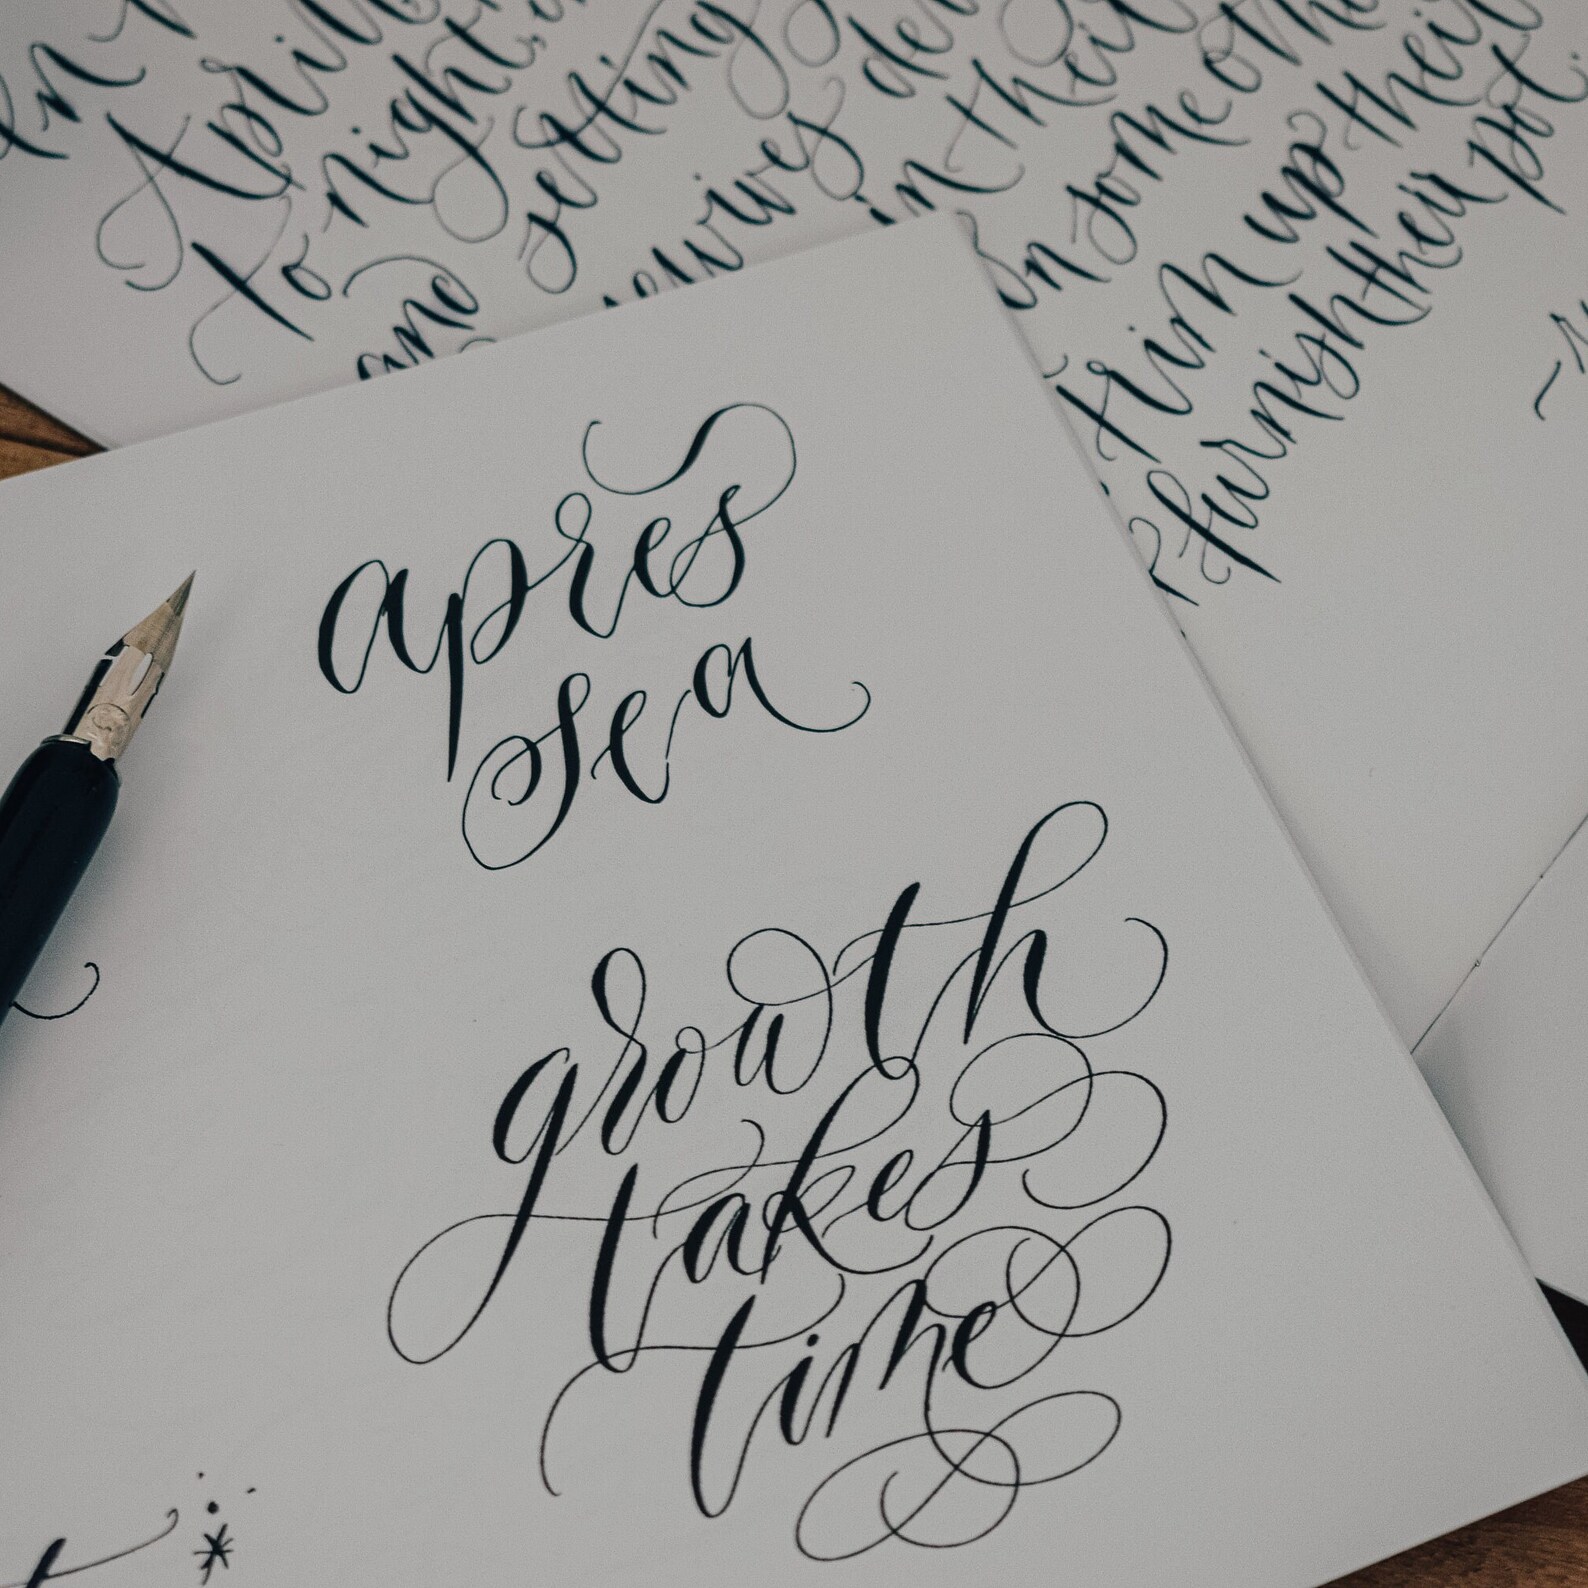 April
to night,
and setting
in their
on some other
trim up their
furnish their pot.
apres
sea
growth
takes
time